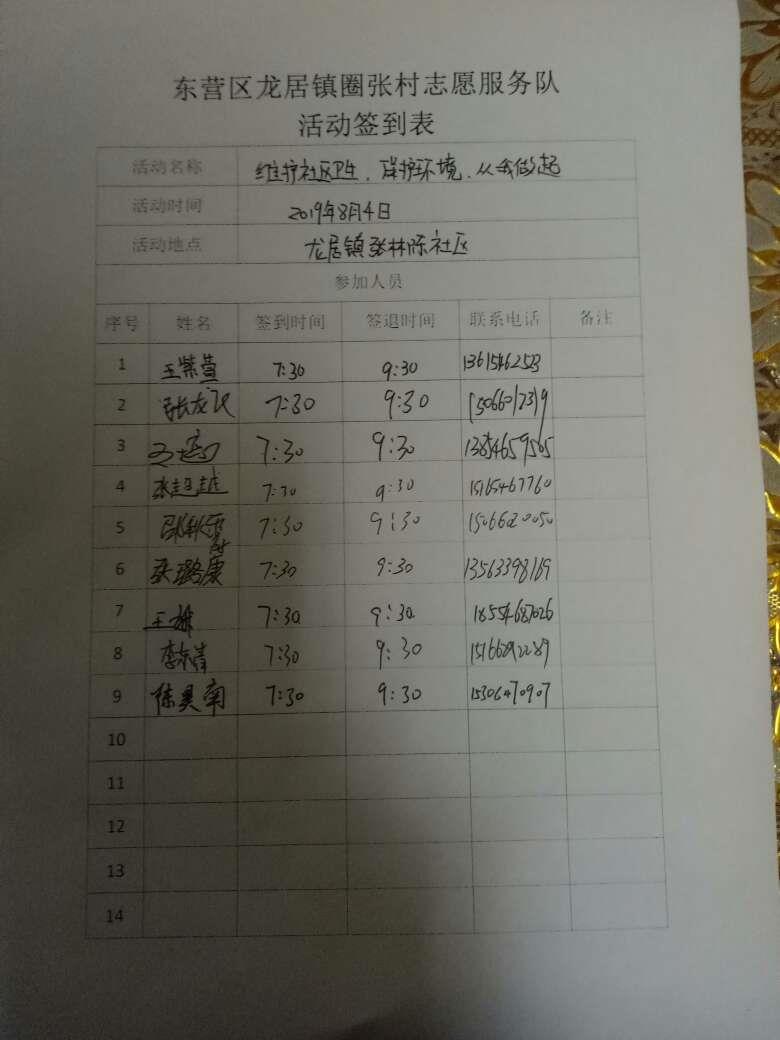 东营区龙居镇圈张村志愿服务队
活动签到表
活动名称 维护社区卫生，保护环境，从我做起
活动时间 2019年8月4日
活动地点 龙居镇张林陈社区
参加人员
序号 姓名 签到时间 签退时间 联系电话 备注
1 王紫萱 7:30 9:30
2 7:30 9:30
3 7:30 9:30 13854659505
4 张超越 7:30 9:30 15165467760
5 7:30 9:30
6 张璐康 7:30 9:30 13563398169
7 王琳 7:30 9:30 18554687026
8 李东清 7:30 9:30
9 陈昊南 7:30 9:30 15306470907
10
11
12
13
14